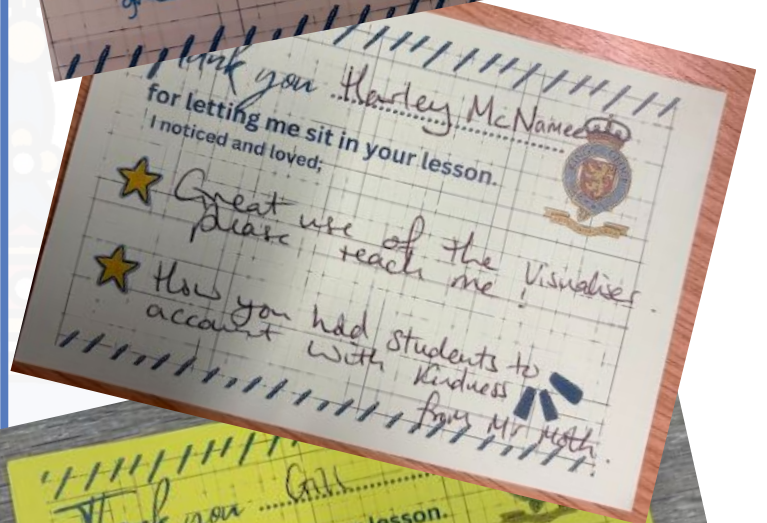 Thank you Harley McNamee
for letting me sit in your lesson.
I noticed and loved;
Great use of the Visualiser.
please teach me!
How you had students to
account with kindness
from Mr Moth.
Thank you Gill
lesson.